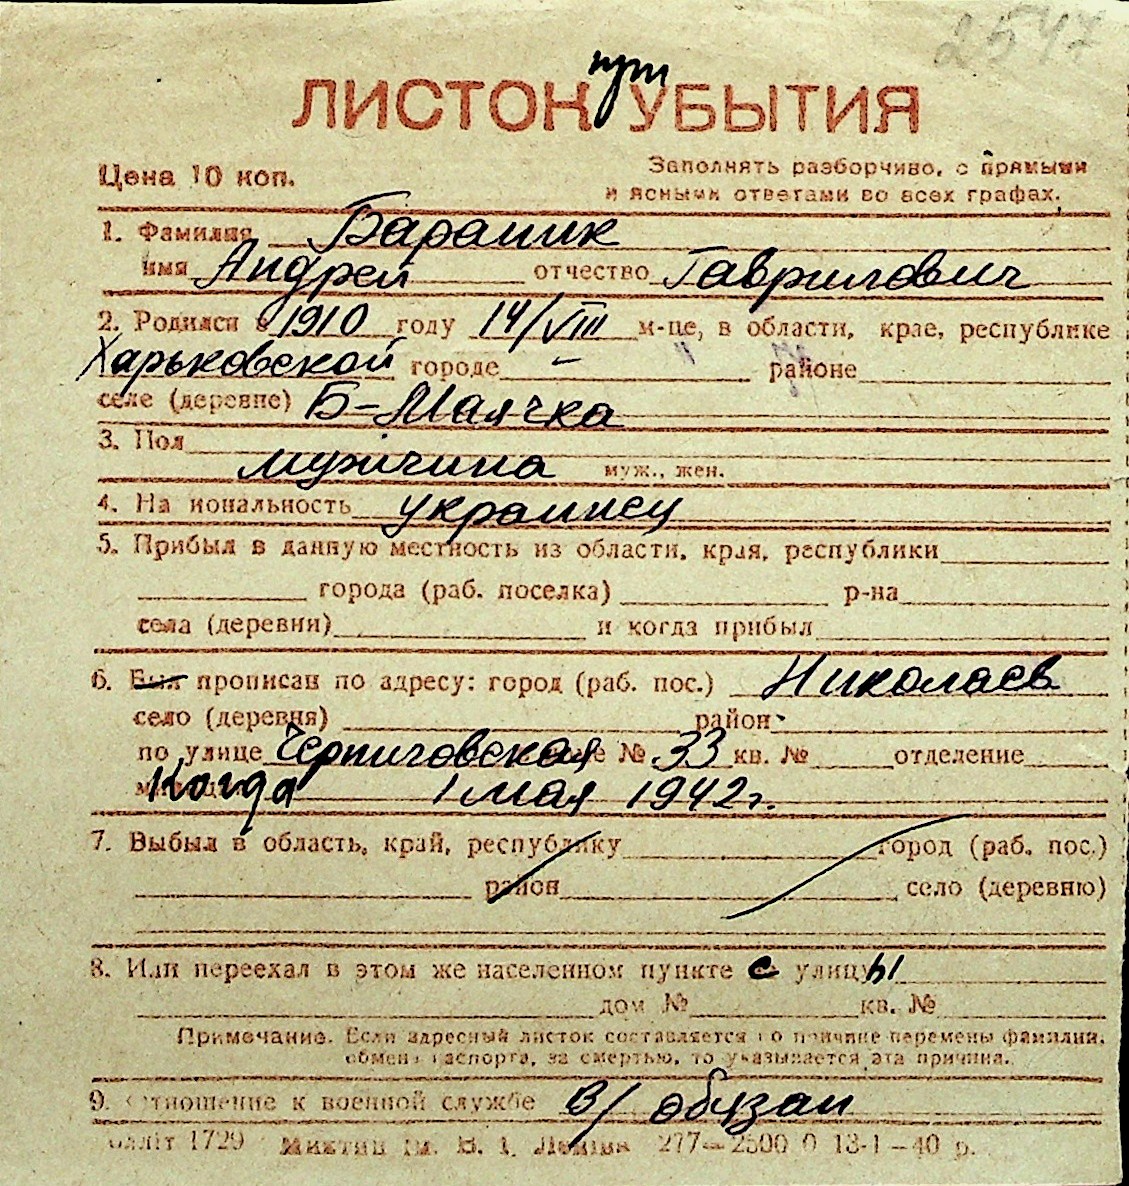 2547
при
ЛИСТОК УБЫТИЯ
Цена 10 коп.
Заполнять разборчиво, с прямыми
и ясными ответами во всех графах.
1. Фамилия Бараник
имя Андрей отчество Гаврилович
2. Родился в 1910 году 14/VIII м-це, в области, крае, республике
Харьковской городе – районе
селе (деревне) Б-Маячка
3. Пол
мужчина муж., жен.
4. На иональность украинец
5. Прибыл в данную местность из области, края, республики
города (раб. поселка) р-на
села (деревни) и когда прибыл
6. Был прописан по адресу: город (раб. пос.) Николаев
село (деревня) район
по улице Черниговская № 33 кв. № отделение
Когда 1 мая 1942 г.
7. Выбыл в область, край, республику город (раб. пос.)
район село (деревню)
8. Или переехал в этом же населенном пункте с улицы
дом № кв. №
Примечание. Если адресный листок составляется по причине перемены фамилии,
обмена паспорта, за смертью, то указывается эта причина.
9. Отношение к военной службе в/обязан
1729 ім. В. І. Леніна 277—2500 0 13-1-40 р.